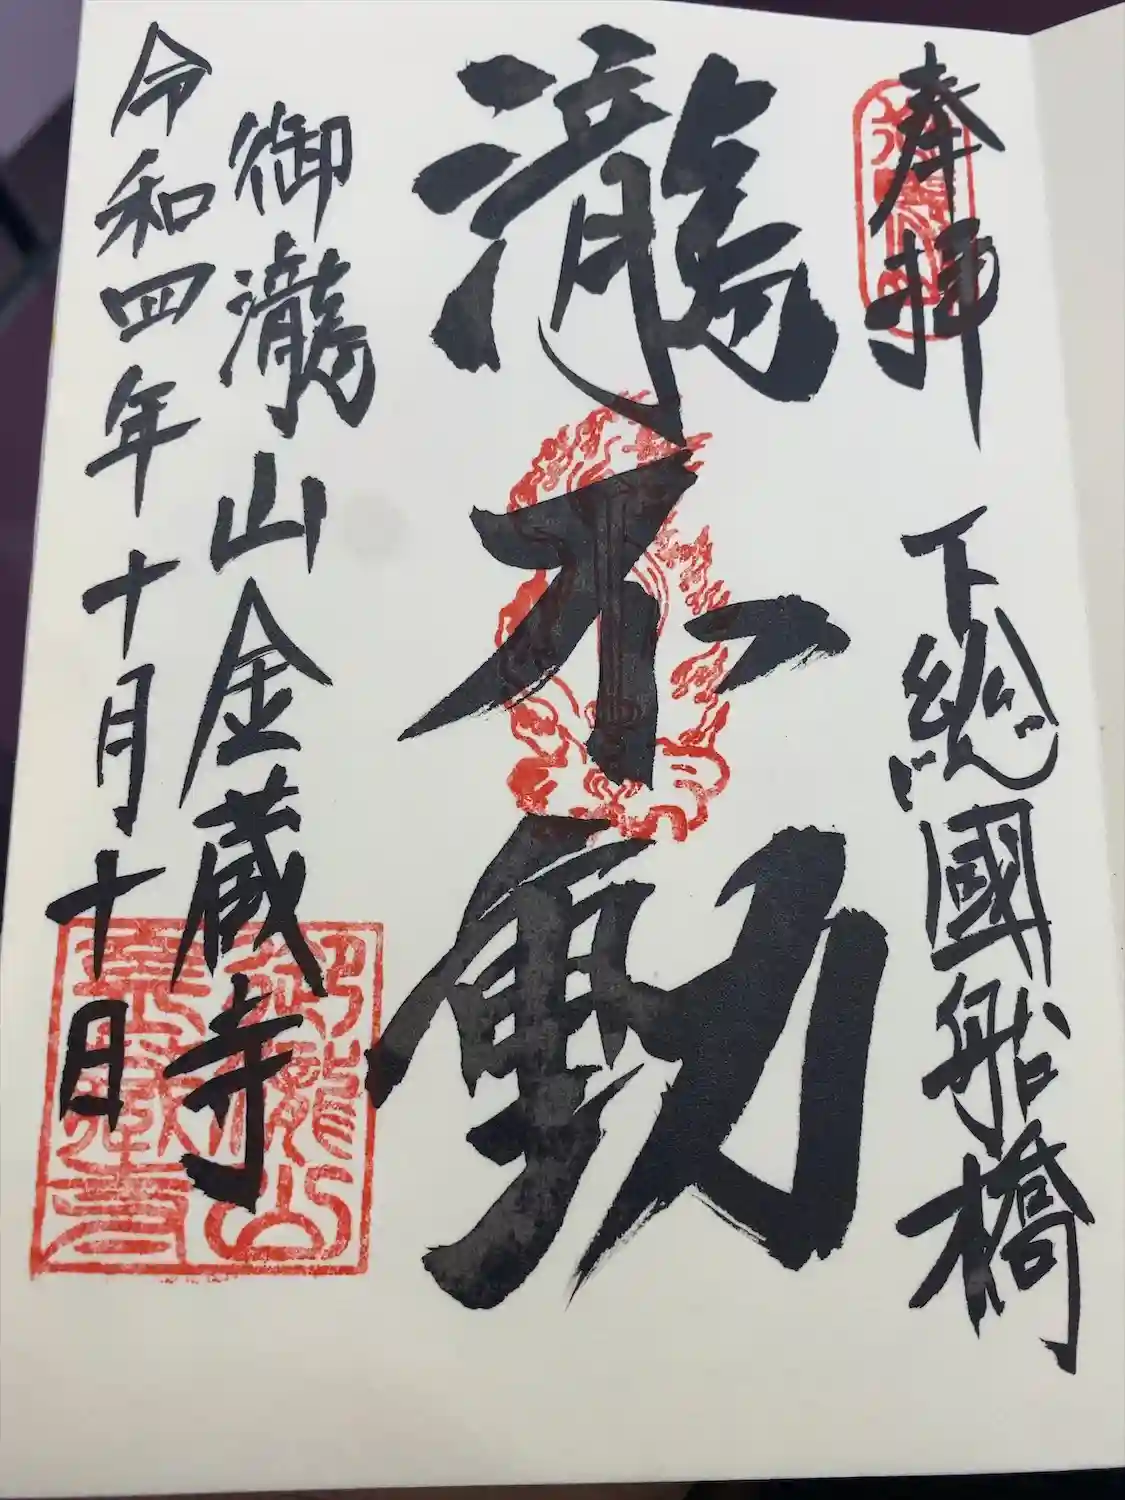 奉拝
下総國船橋
瀧不動
御瀧山金蔵寺
令和四年十月十日
御瀧山